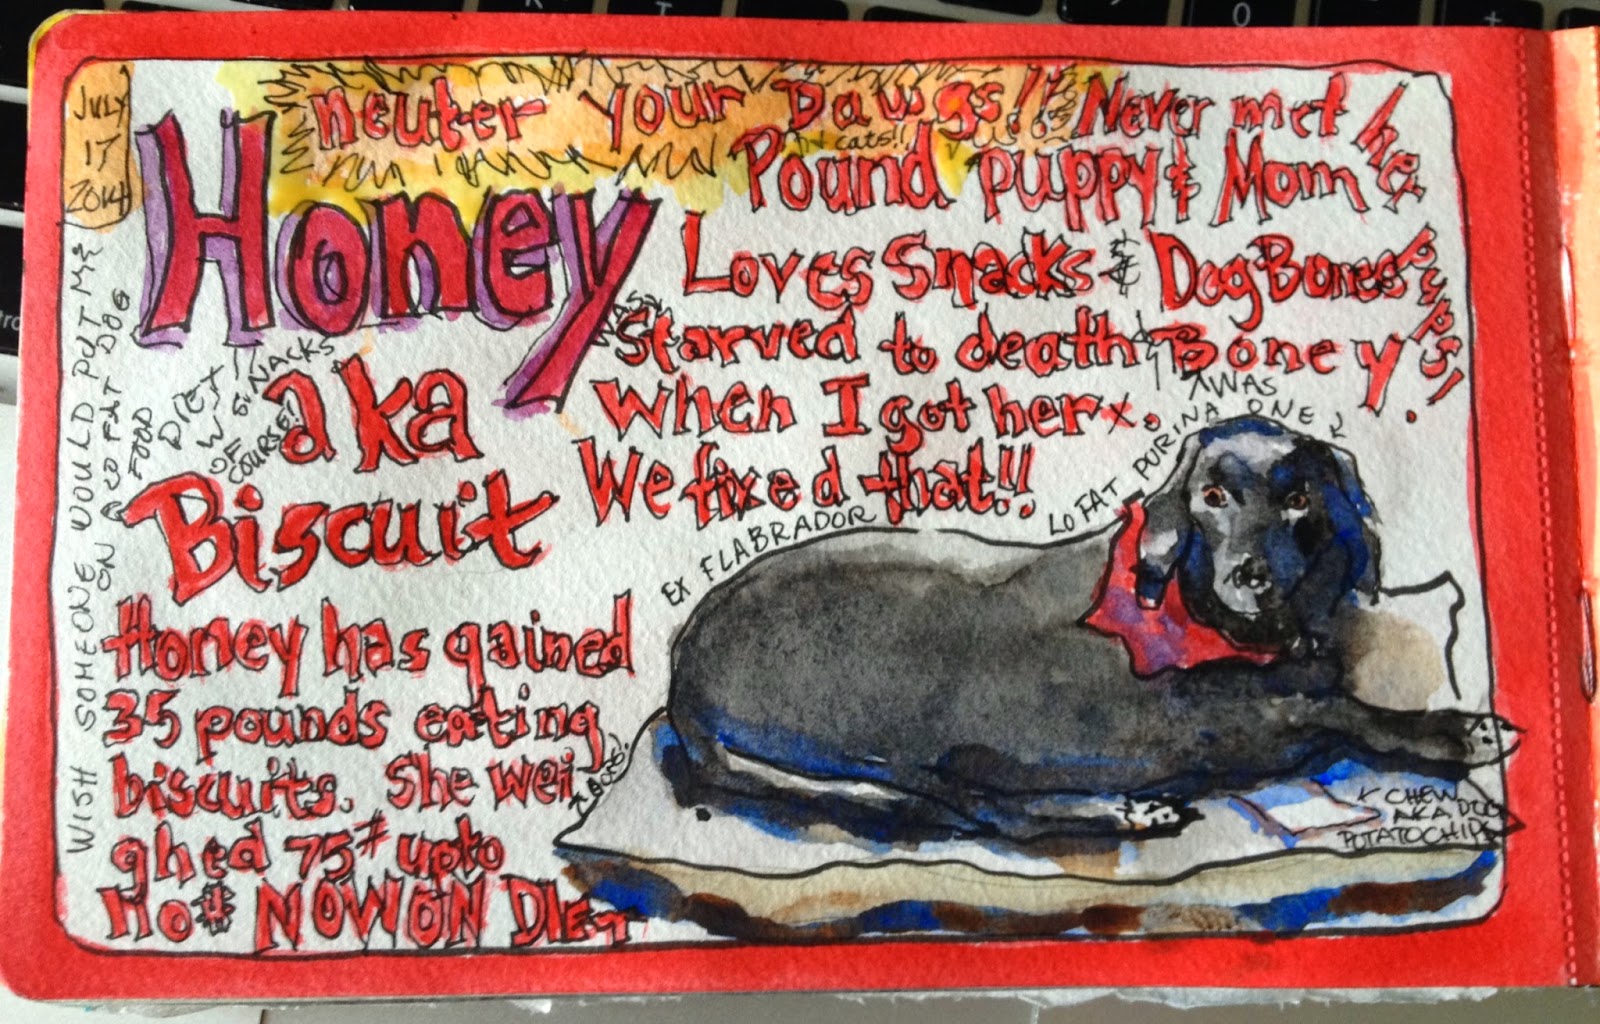 JULY
17
2014
neuter your Dawgs!!
and cats!!
Honey
aka
Biscuit
Never met her
Pound puppy & Mom & pups!
Loves Snacks & DogBones
was Starved to death & Boney.
When I got her.
We fixed that!!
WAS
LO FAT PURINA ONE
EX FLABRADOR
Honey has gained
35 pounds eating
biscuits. She wei
ghed 75# upto
110# NOW ON DIET
WISH SOMEONE WOULD PUT ME
ON A LO FAT DOG
FOOD
DIET!!
W SNACKS
OF
COURSE!
CHEW
AKA DOG
POTATOCHIPS